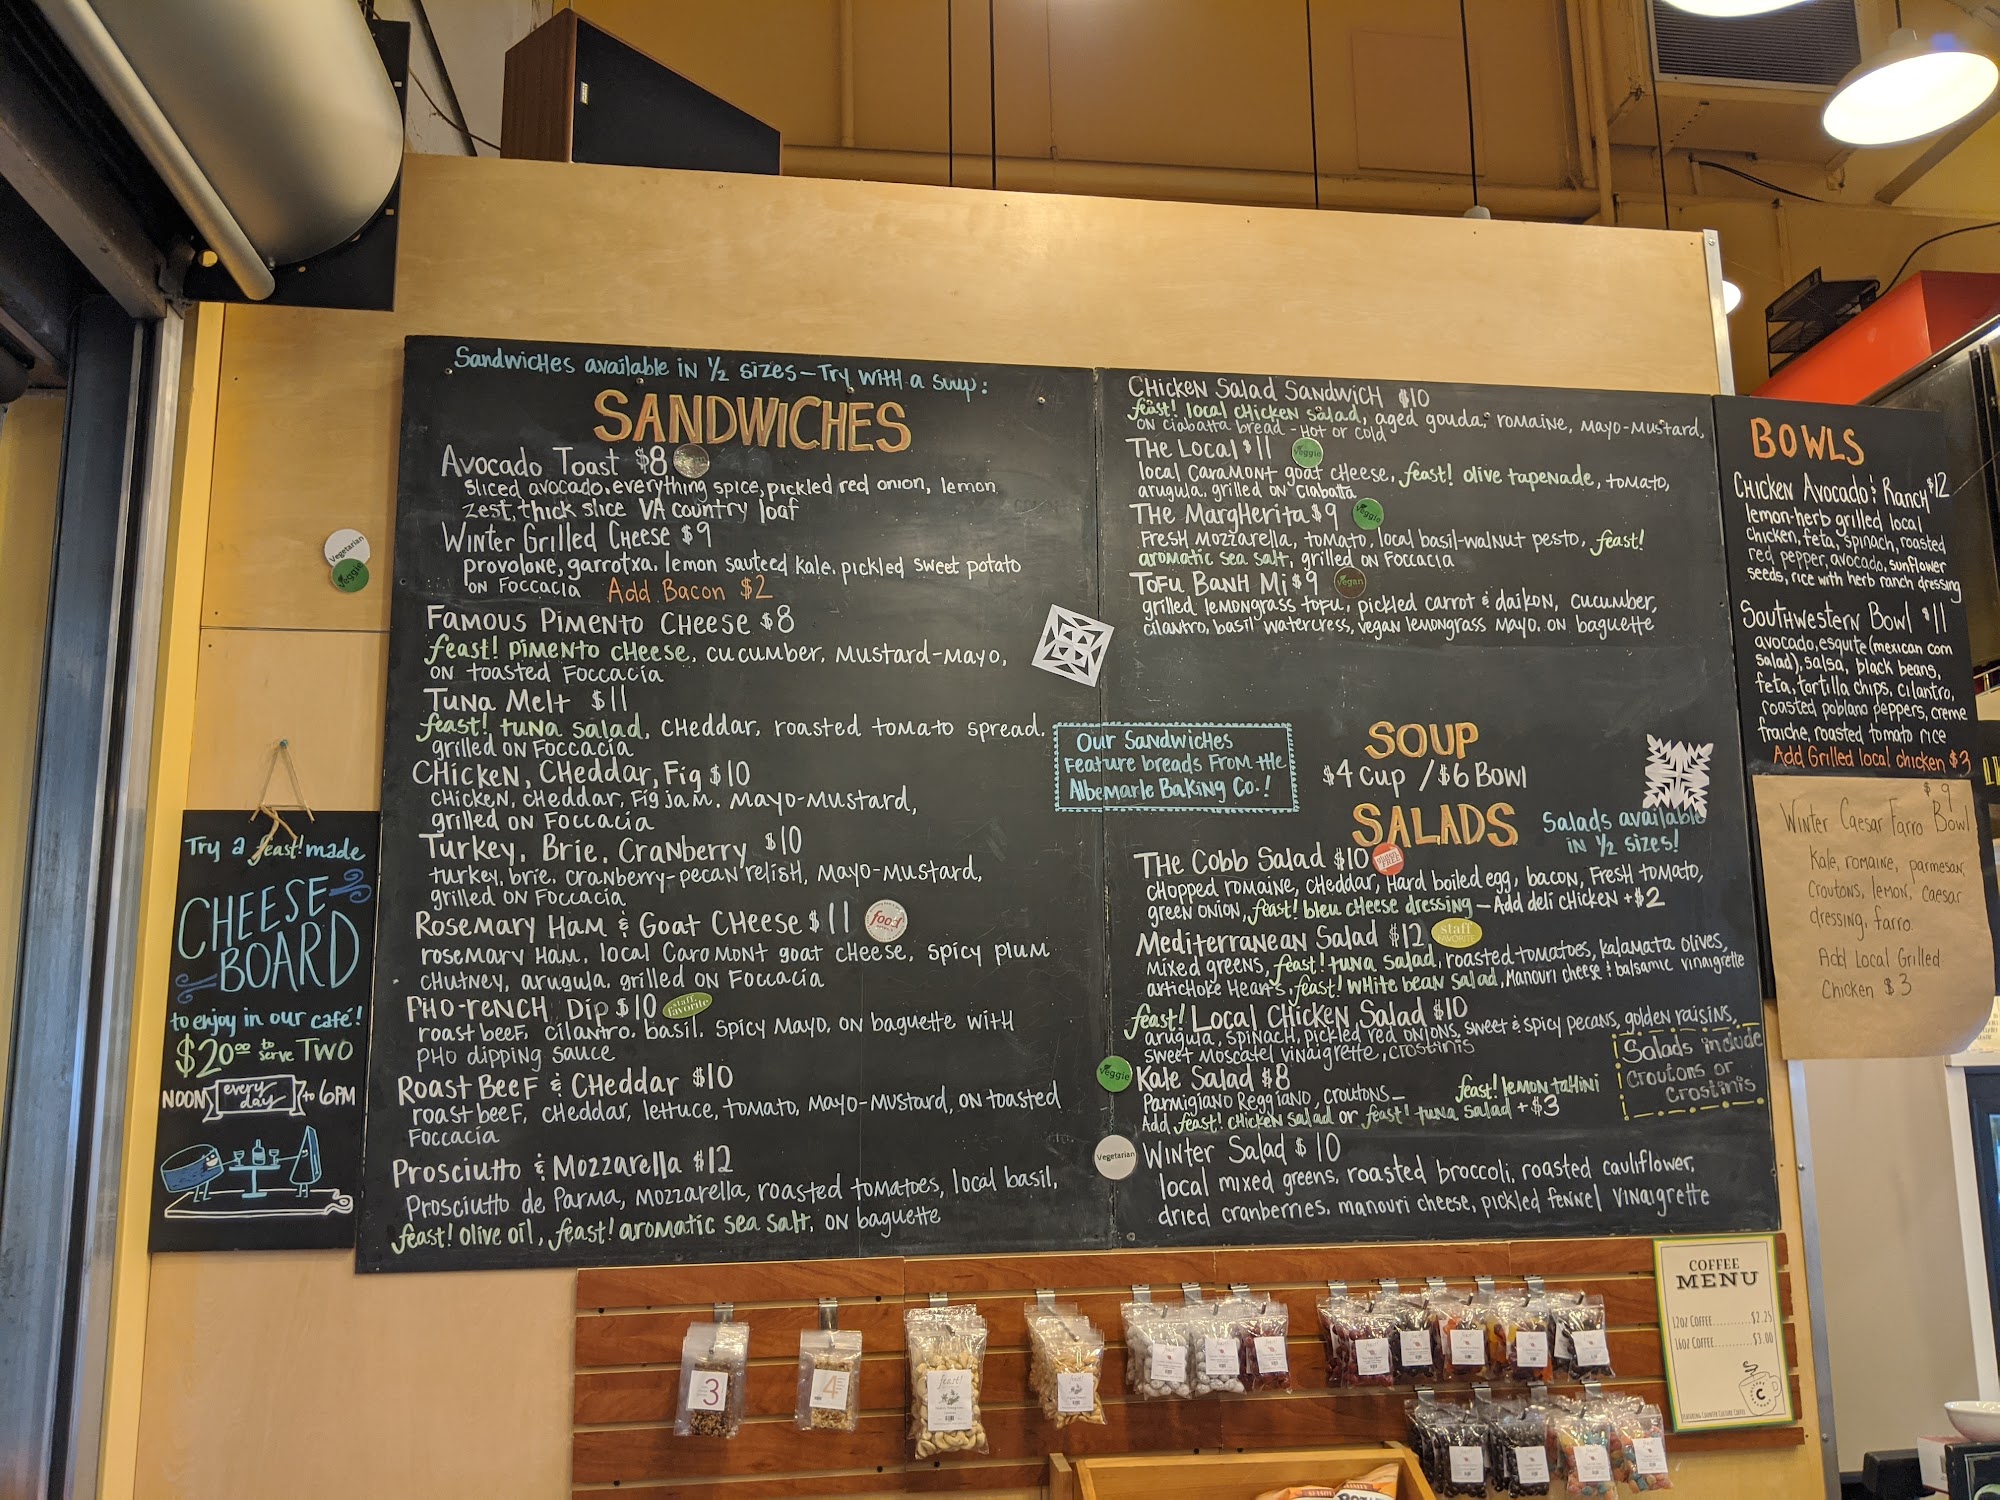 Sandwiches available in 1/2 sizes - Try with a soup:
SANDWICHES
Avocado Toast $8
sliced avocado, everything spice, pickled red onion, lemon
zest, thick slice VA country loaf
Winter Grilled Cheese $9
provolone, garrotxa, lemon sauteed kale, pickled sweet potato
on Foccacia Add Bacon $2
Famous Pimento Cheese $8
feast! pimento cheese, cucumber, mustard-mayo,
on toasted Foccacia
Tuna Melt $11
feast! tuna salad, cheddar, roasted tomato spread,
grilled on Foccacia
Chicken, Cheddar, Fig $10
chicken, cheddar, fig jam, mayo-mustard,
grilled on Foccacia
Turkey, Brie, Cranberry $10
turkey, brie, cranberry-pecan relish, mayo-mustard,
grilled on Foccacia
Rosemary Ham & Goat Cheese $11
food
rosemary ham, local Caromont goat cheese, spicy plum
chutney, arugula, grilled on Foccacia
Pho-rench Dip $10
staff favorite
roast beef, cilantro, basil, spicy mayo, on baguette with
pho dipping sauce
Roast Beef & Cheddar $10
roast beef, cheddar, lettuce, tomato, mayo-mustard, on toasted
Foccacia
Prosciutto & Mozzarella $12
Prosciutto de Parma, mozzarella, roasted tomatoes, local basil,
feast! olive oil, feast! aromatic sea salt, on baguette
Chicken Salad Sandwich $10
feast! local chicken salad, aged gouda, romaine, mayo-mustard,
on ciabatta bread - hot or cold
The Local $11
Veggie
local Caramont goat cheese, feast! olive tapenade, tomato,
arugula, grilled on ciabatta
The Margherita $9
Veggie
Fresh mozzarella, tomato, local basil-walnut pesto, feast!
aromatic sea salt, grilled on Foccacia
Tofu Banh Mi $9
Vegan
grilled lemongrass tofu, pickled carrot & daikon, cucumber,
cilantro, basil watercress, vegan lemongrass mayo, on baguette
Our Sandwiches
Feature breads from the
Albemarle Baking Co.!
SOUP
$4 cup / $6 Bowl
SALADS
Salads available
in 1/2 sizes!
The Cobb Salad $10
gluten FREE
chopped romaine, cheddar, hard boiled egg, bacon, fresh tomato,
green onion, feast! bleu cheese dressing - Add deli chicken +$2
Mediterranean Salad $12
staff FAVORITE
mixed greens, feast! tuna salad, roasted tomatoes, kalamata olives,
artichoke hearts, feast! white bean salad, Manouri cheese & balsamic vinaigrette
feast! Local Chicken Salad $10
arugula, spinach, pickled red onions, sweet & spicy pecans, golden raisins,
sweet moscatel vinaigrette, crostinis
Veggie
Kale Salad $8
Parmigiano Reggiano, croutons - feast! lemon tahini
Add feast! chicken salad or feast! tuna salad +$3
Salads include
croutons or
crostinis
Vegetarian
Winter Salad $10
local mixed greens, roasted broccoli, roasted cauliflower,
dried cranberries, manouri cheese, pickled fennel vinaigrette
BOWLS
Chicken Avocado & Ranch $12
lemon-herb grilled local
chicken, feta, spinach, roasted
red pepper, avocado, sunflower
seeds, rice with herb ranch dressing
Southwestern Bowl $11
avocado, esquite (mexican corn
salad), salsa, black beans,
feta, tortilla chips, cilantro,
roasted poblano peppers, creme
fraiche, roasted tomato rice
Add Grilled local chicken $3
$9
Winter Caesar Farro Bowl
Kale, romaine, parmesan,
croutons, lemon, caesar
dressing, farro.
Add Local Grilled
Chicken $3
Vegetarian
Veggie
Try a feast! made
CHEESE
BOARD
to enjoy in our café!
$20.00 to serve TWO
NOON every day to 6PM
COFFEE
MENU
12oz COFFEE..........$2.25
16oz COFFEE..........$3.00
FEATURING COUNTER CULTURE COFFEE
3
4
feast!